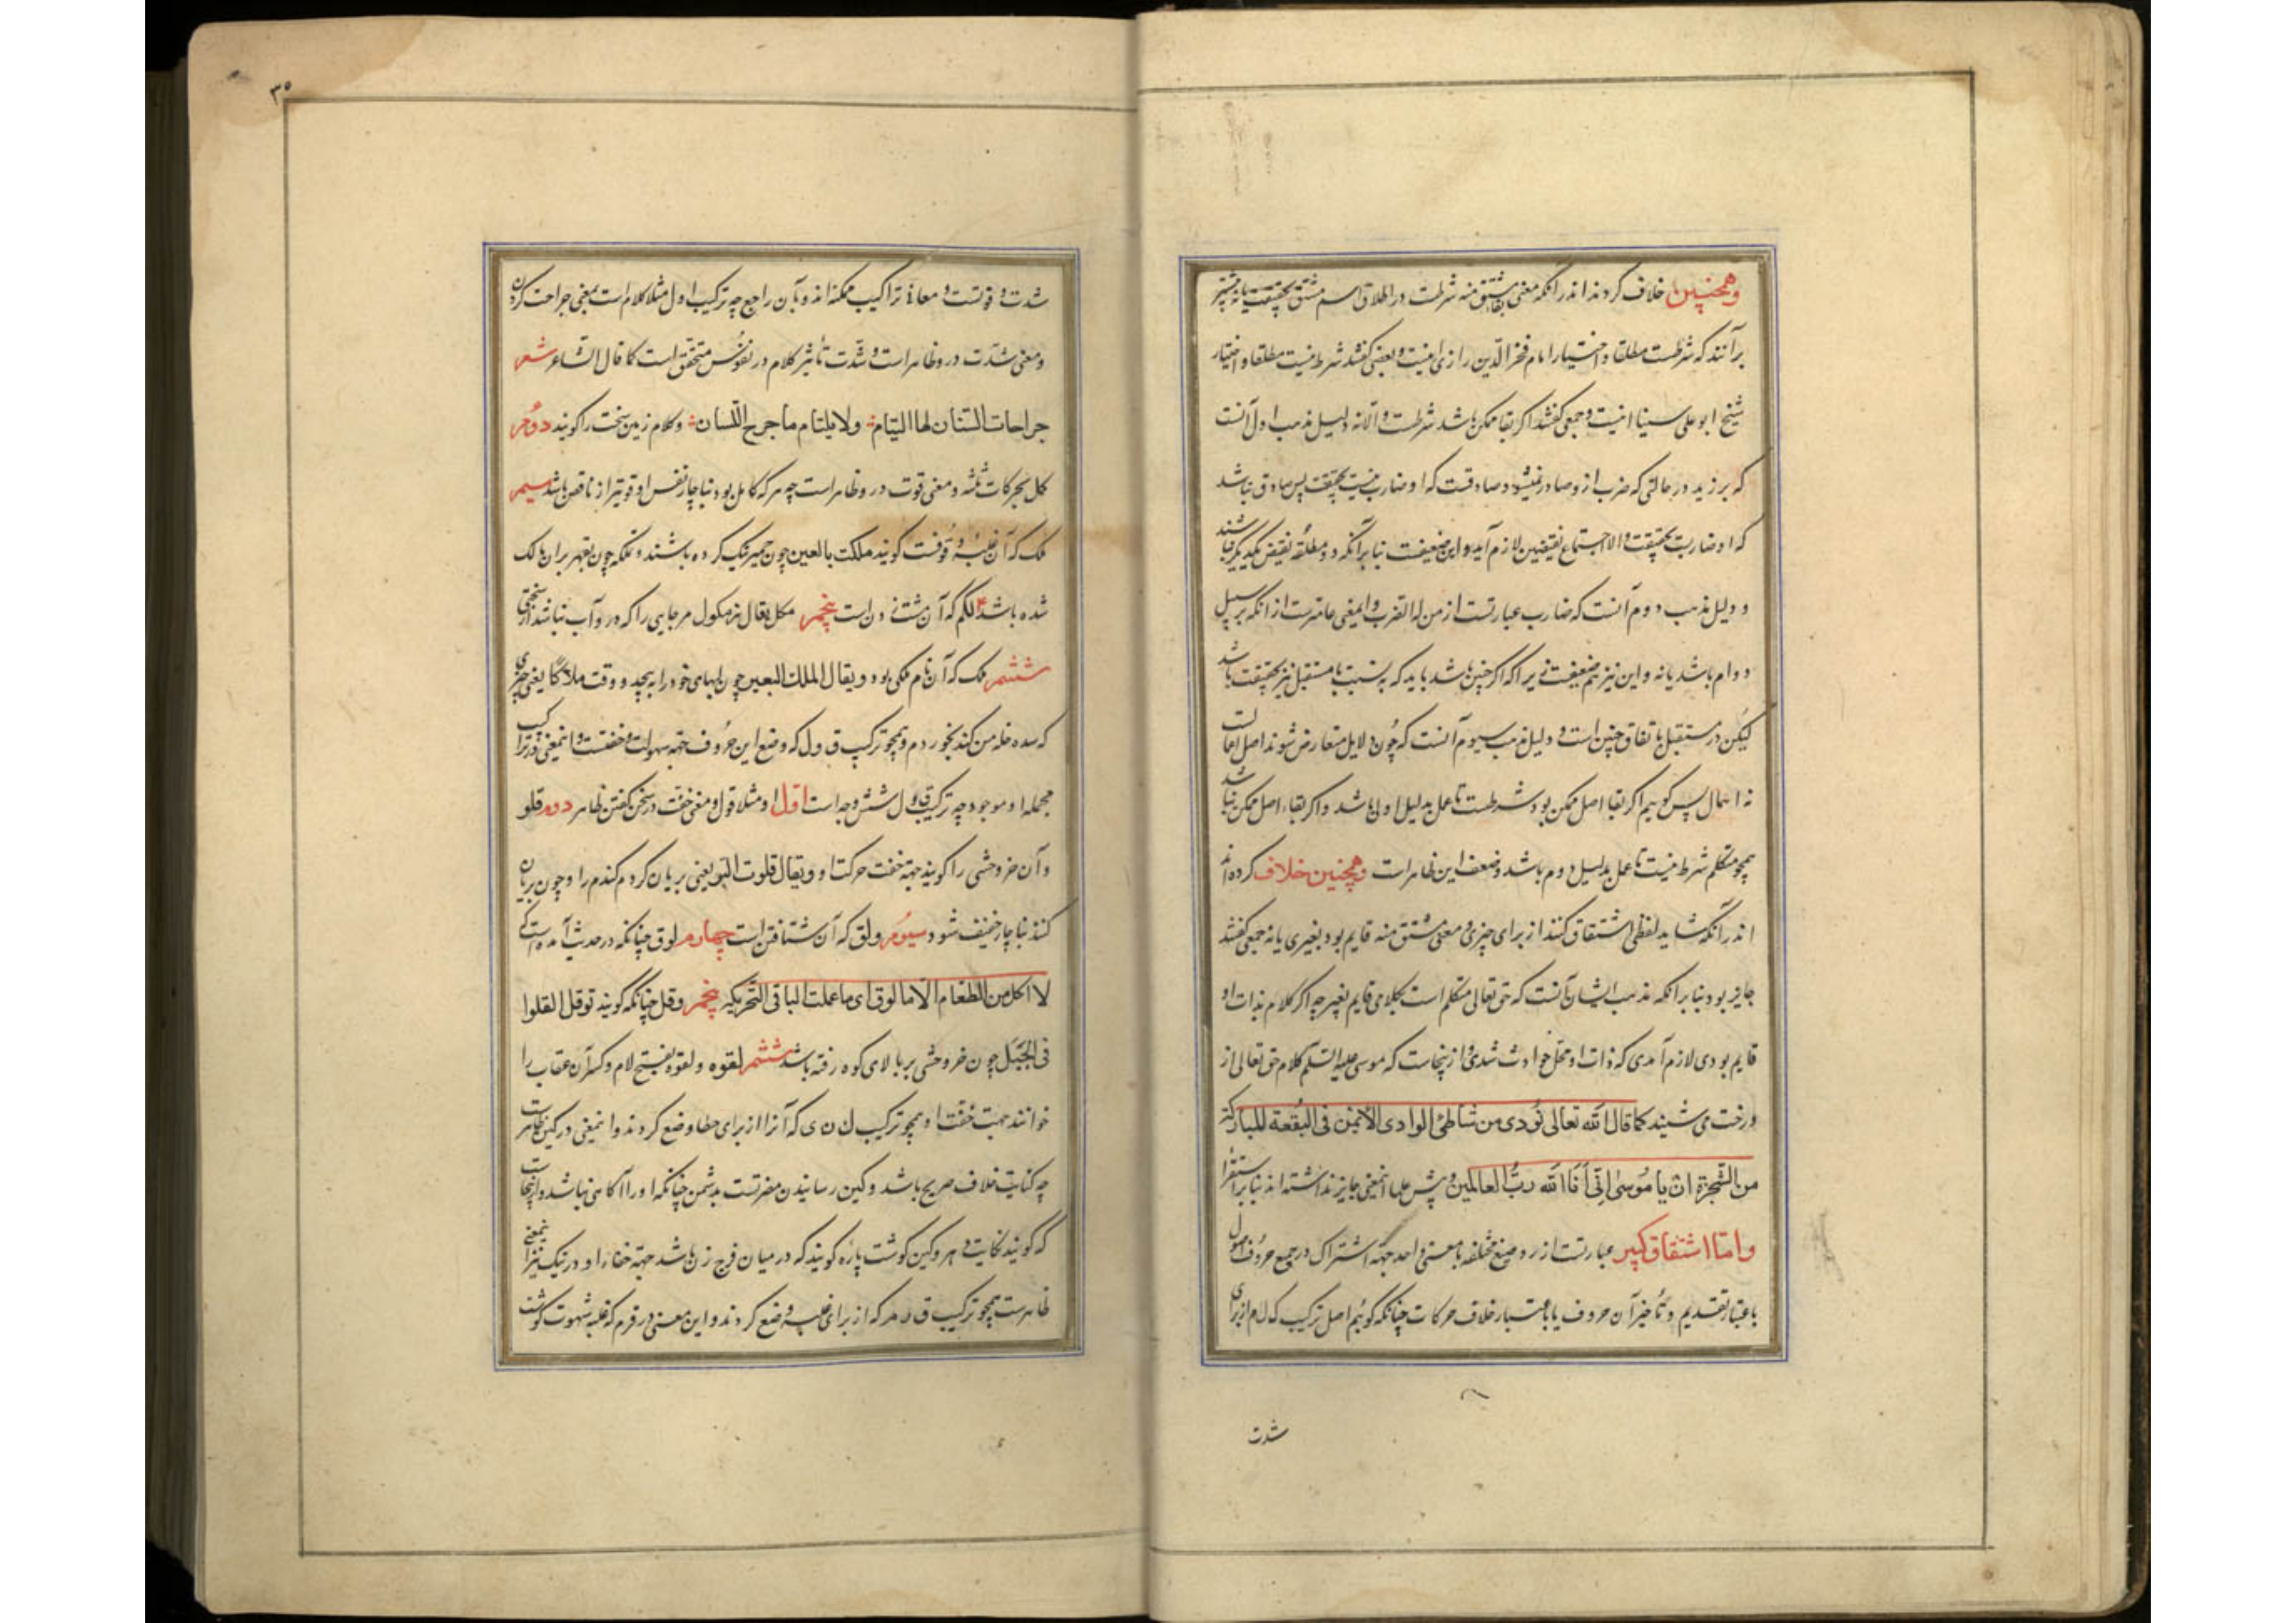 وهمچنین خلاف کردند اندر آنکه معنی مشتق منه شرطست در اطلاق اسم مشتق بحقیقت یا نه بیشتر
برآنند که شرطست مطلقا و اختیار امام فخر الدین رازی اینست و بعضی گفتند شرط نیست مطلقا و اختیار
شیخ ابو علی سینا اینست و جمعی گفتند اگر بقا ممکن باشد شرطست و الا نه دلیل مذهب اول آنست
که بر زید در حالتی که ضرب ازو صادر نمیشود صادقست که او ضارب نیست بحقیقت پس صادق نباشد
که او ضاربست بحقیقت والا اجتماع نقیضین لازم آید و این ضعیفست بنا برآنکه دو مطلقه نقیض یکدیگر نباشند
و دلیل مذهب دوم آنست که ضارب عبارتست از من له الضرب و اینمعنی عامترست از آنکه بر سبیل
دوام باشد یا نه و این نیز هم ضعیفست زیرا که اگر چنین باشد باید که به نسبت با مستقبل نیز بحقیقت باشد
لیکن در مستقبل باتفاق چنین است و دلیل مذهب سیوم آنست که چون دلایل متعارض شوند اصل اعمالست
نه اهمال پس گوییم اگر بقا اصل ممکن بود شرطست تا عمل بدلیل اول باشد و اگر بقاء اصل ممکن نباشد
همچو متکلم شرط نیست تا عمل بدلیل دوم باشد و ضعف این ظاهر است وهمچنین خلاف کرده اند
اندر آنکه شاید لفظی اشتقاق کنند از برای چیزی و معنی مشتق منه قایم بود بغیری یا نه جمعی گفتند
جایز بود بنا برآنکه مذهب ایشان آنست که حق تعالی متکلم است بکلامی قایم بغیر چه اگر کلام بذات او
قایم بودی لازم آمدی که ذات او محل حوادث شدی و ازینجاست که موسی علیه السلم کلام حق تعالی از
درخت می شنید کما قال الله تعالی نودی من شاطئ الوادی الایمن فی البقعة المبارکة
من الشجرة ان یا موسی انی انا الله رب العالمین و بیش علما اینمعنی جایز نداشته اند بنا بر استقرا
واما اشتقاق کبیر عبارتست از رد صیغ مختلفه با معنی واحد جهة اشتراک در جمیع حروف اصول
باعتبار تقدیم و تأخیر آن حروف یا باعتبار خلاف حرکات چنانکه گوئیم اصل ترکیب ک ل م از برای
شدت
٣٥
شدت و قوتست و معانی تراکیب ممکنه اند و بآن راجع چه ترکیب اول مثلا کلام است بمعنی جراحت کردن
و معنی شدت درو ظاهر است و شدت تأثیر کلام در نفوس متحقق است کما قال الشاعر شعر
جراحات السنان لها التیام ؞ ولا یلتام ما جرح اللسان ؞ و کلام زمین سخت را گویند دوم
کمل بحرکات ثلثه و معنی قوت درو ظاهر است چه هر که کامل بود بناچار نفس او قویتر از ناقص باشد سیم
ملک که آن غلبه و قوتست گویند ملکت بالعین چون خمیر نیک کرده باشند و ملکه چون بقهر بران مالک
شده باشد ۴ لکم که آن مشت زدن است پنجم مکل یقال بئر مکول مر جایی را که درو آب نباشد از سختی
ششم ملک که آن نام ملکی بود و یقال الملک البعیر چون لبهای خود را به پیچد و وقت ملاکا یعنی چیزی
که سده خله من کند بخوردم و همچو ترکیب ق و ل که وضع این حروف جهة سهولت و خفتست و اینمعنی در تراکیب
مجمله او موجود چه ترکیب ق و ل شش وجه است اول او مثلا قول و معنی خفت در سخن گفتن ظاهر دوم قلو
و آن خر وحشی را گویند جهة خفت حرکت او و یقال قلوت البر یعنی بریان کردم گندم را و چون بریان
کنند بناچار خفیف شود و سیوم ولق که آن شتافتن است چهارم لوق چنانکه در حدیث آمده است که
لا آکل من الطعام الا ما لوق ای ما عملت الباقی التحریکه پنجم وقل چنانکه گویند توقل القلوا
فی الجبل چون خر وحشی بر بالای کوه رفته باشد ششم لقوه و لقوه بفتح لام و کسر آن عقاب را
خوانند جهت خفت او و همچو ترکیب ک ن ی که آنرا از برای خطا وضع کردند و اینمعنی در کین ظاهرست
چه کنایت خلاف صریح باشد و کین رسانیدن مضرتست بدشمن چنانکه او را آگاهی نباشد و ازینجاست
که گویند نکایت و هر و کین گوشت پاره گویند که در میان فرج زن باشد جهة خفاء او و در نیک نیز اینمعنی
ظاهرست همچو ترکیب ق ر م که از برای غلبه وضع کردند و این معنی در قرم که غلبه شهوت گوشت